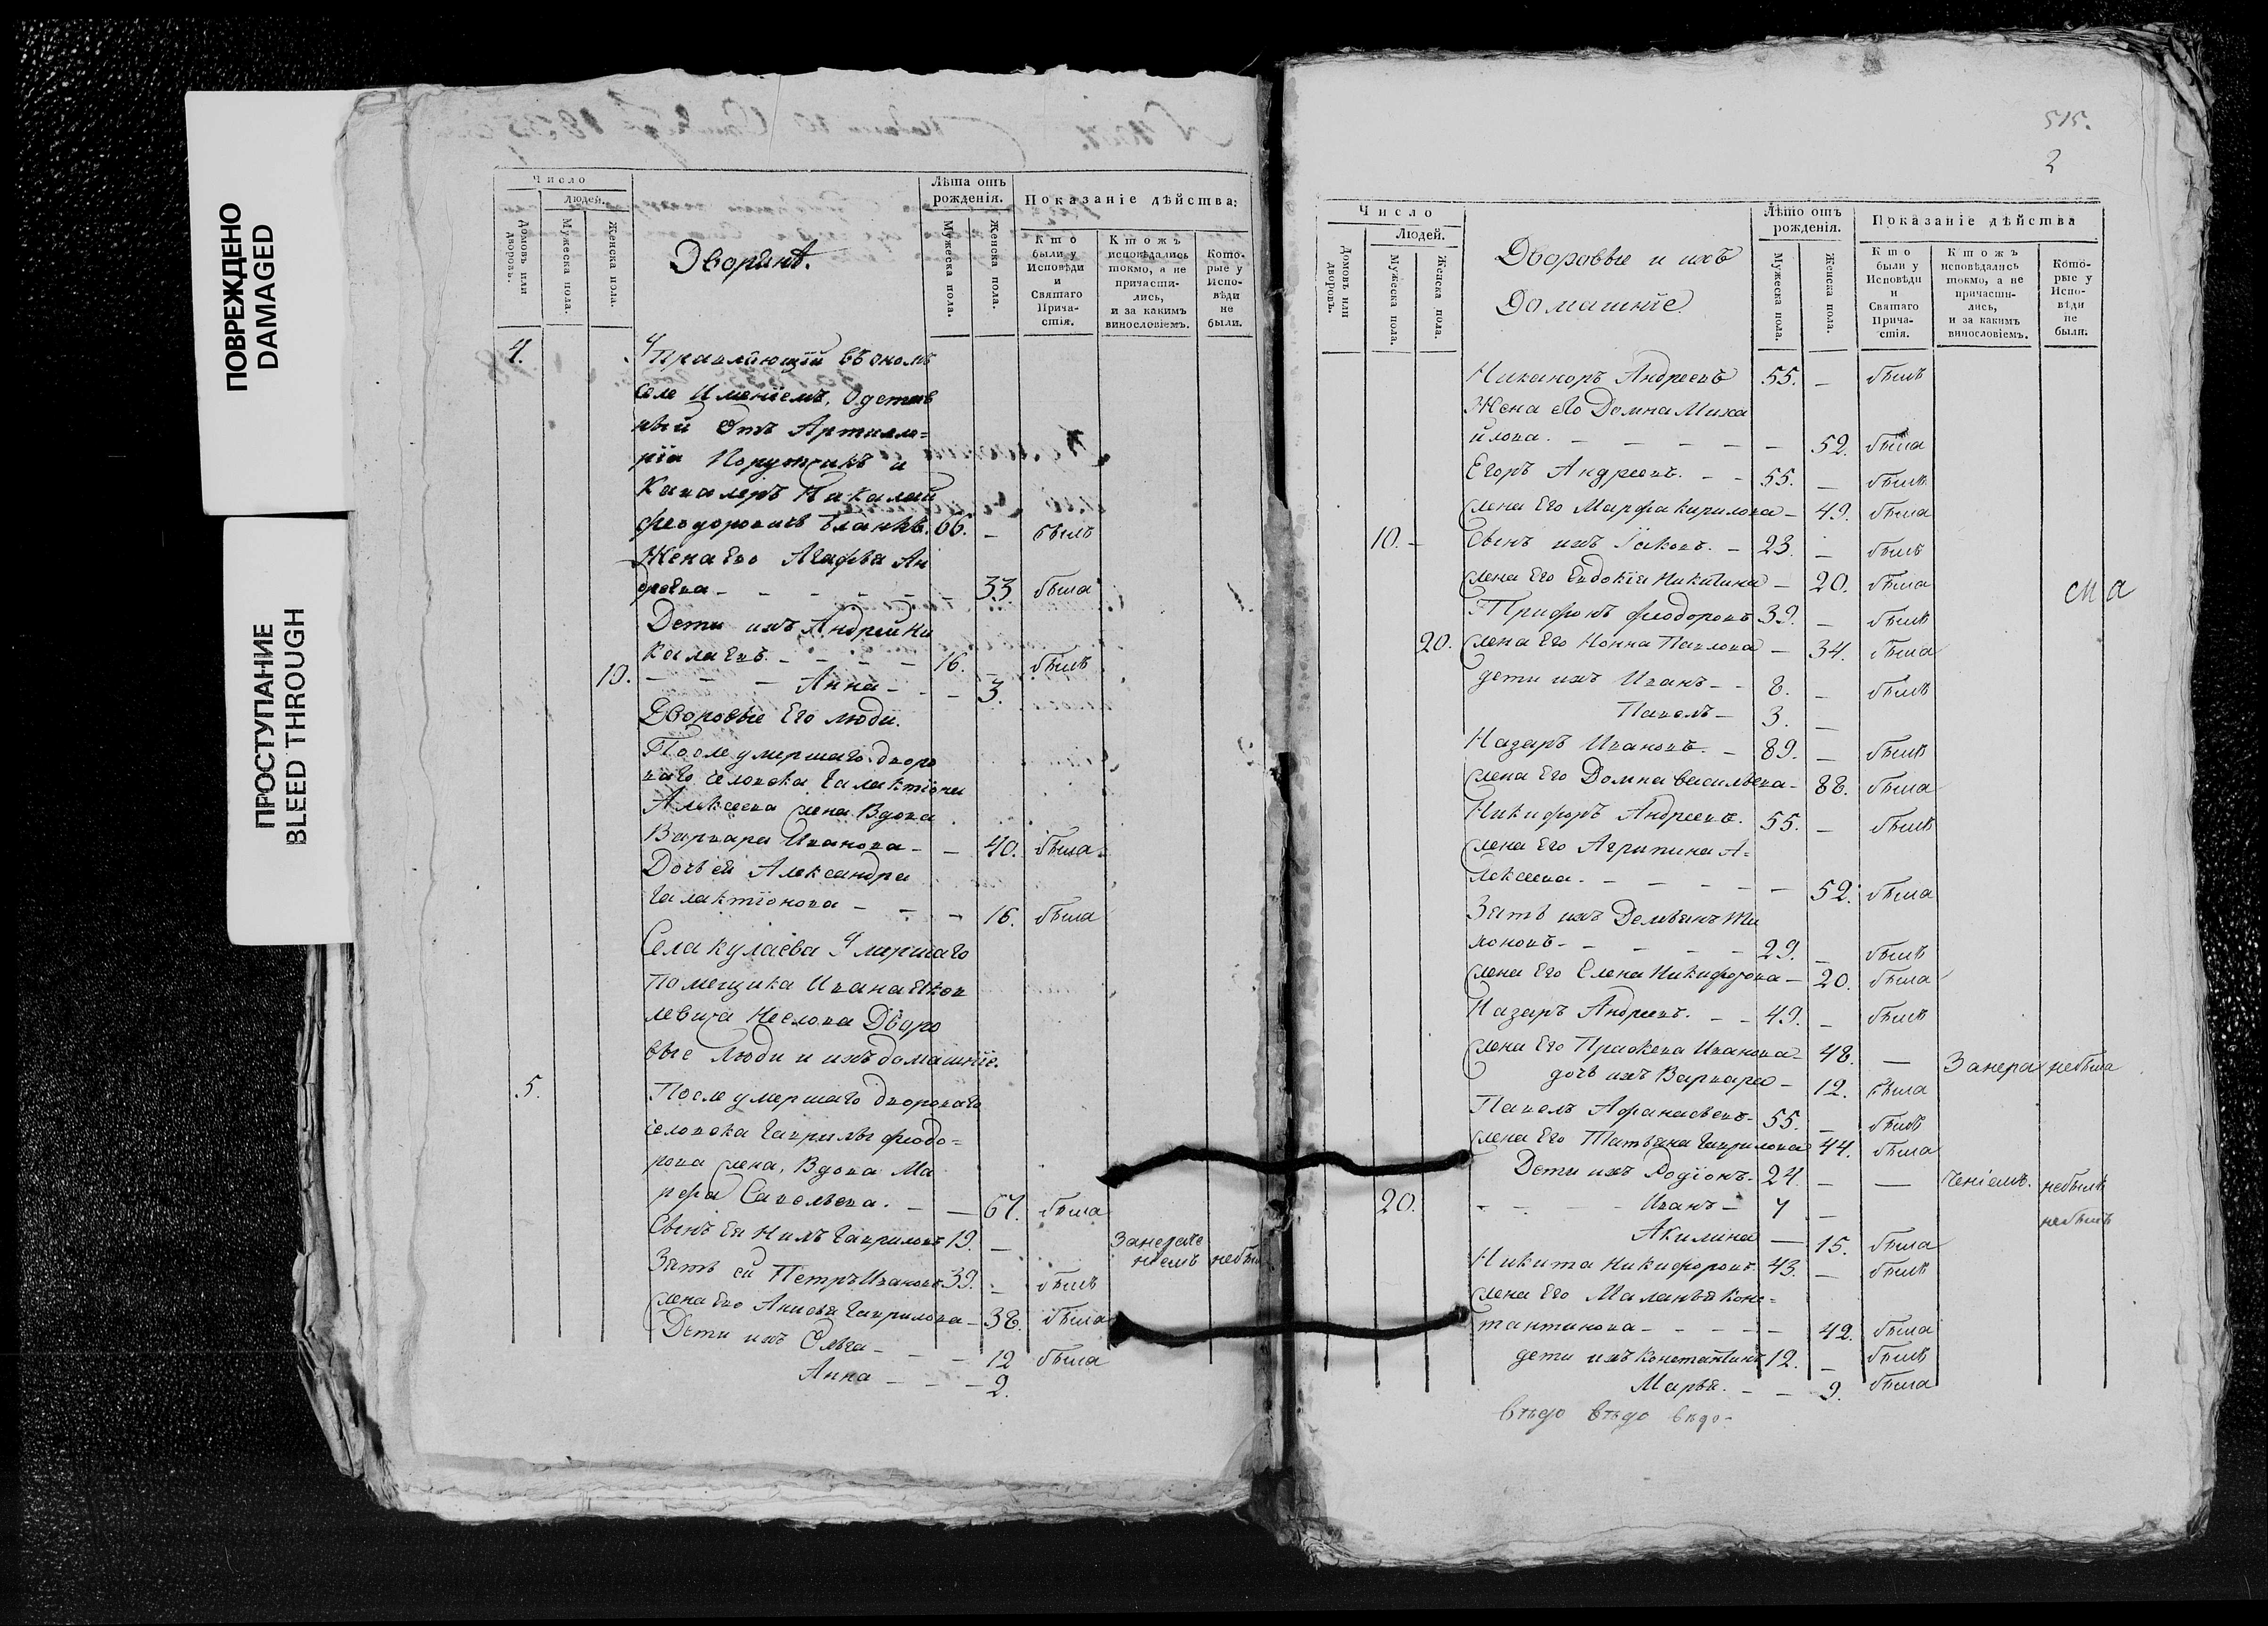 ПОВРЕЖДЕНО
DAMAGED
ПРОСТУПАНИЕ
BLEED THROUGH
Число
Людей.
Домовъ или дворовъ.
Мужеска пола.
Женска пола.
Дворянѣ.
Лѣта отъ рожденія.
Мужеска пола.
Женска пола.
Показаніе дѣйства:
Кто были у Исповѣди и Святаго Прича-стія.
Ктожъ исповѣдались токмо, а не причасти-лись, и за какимъ винословіемъ.
Кото-рые у Испо-вѣди не были.
4. Управляющій въ ономъ
селе Именіемъ, Одстав
ный Отъ Артилле=
ріи Порутчикъ и
Кавалеръ Николай
Феодоровичь Бланкъ. 66. — былъ
Жена Его Агафья Ан
дреева - - - - - - 33 была
Дети ихъ Андрей Ни
колаевъ. - - - - 16. былъ
10. - - - Анна - - - 3.
Дворовые Его люди.
После умершаго дворо
ваго человека Галактіона
Алексеева жена Вдова
Варвара Иванова - - 40. была
Дочь ей Александра
Галактіонова - - - 16. была
Села Кулаева Умершаго
Помещика Ивана Яков
левича Неелова Дворо
вые Люди и ихъ домашніе.
5. После умершаго двороваго
человека Гаврилы Феодо=
рова жена, Вдова Ма
рфа Савельева. - — 67. была
Сынъ Ея Нилъ Гавриловъ 19. — Занераче
ніемъ небы
Зять ей Петръ Ивановъ 39. — былъ
жена Его Анисья Гаврилова - 38. была
Дети ихъ Ольга - - - 12 была
Анна - - - 2.
515.
2
Число
Людей.
Домовъ или дворовъ.
Мужеска пола.
Женска пола.
Дворовые и ихъ
Домашніе
Лѣто отъ рожденія.
Мужеска пола.
Женска пола.
Показаніе дѣйства
Кто были у Исповѣди и Святаго Прича-стія.
Ктожъ исповѣдались токмо, а не причасти-лись, и за какимъ винословіемъ.
Кото-рые у Испо-вѣди не были.
Никаноръ Андреевъ 55. — былъ
Жена его Домна Миха
йлова. - - - - - - 52. была
Егоръ Андреевъ. - - 55. — былъ
жена Его Марфа Кирилова - 49. была
10. - Сынъ ихъ Іаковъ. - 23. — былъ
жена Его Евдокія Никитина - 20. была
Трифонъ Феодоровъ 39. — былъ
20. жена Его Нонна Павлова - 34. была
дети ихъ Иванъ - - 8. — былъ
Павелъ - 3. —
Назаръ Ивановъ. - 89. — былъ
жена Его Домна Васильева - 88. была
Никифоръ Андреевъ. 55. — былъ
жена Его Агрипина А=
лексеева. - - - - - - 52. была
Зять ихъ Демьянъ Ти
моновъ - - - - - 29. — былъ
жена Его Елена Никифорова - 20. была
Назаръ Андреевъ. - - 49. — былъ
жена Его Прасковa Иванова - 48. — Занера небыла
дочь ихъ Варвара - 12. была
Павелъ Афанасьевъ - 55. — былъ
жена Его Татьяна Гаврилова 44. была
Дети ихъ Родіонъ - 24. — — ченіемъ. небылъ
20. - - - - Иванъ - 7 — небылъ
Акилина — 15. была
Никита Никифоровъ. 43. — былъ
жена Его Маланья Конс=
тантинова - - - - - - 42. была
дети ихъ Константинъ 12. — былъ
Марья. - - 9. была
вѣдо вѣдо вѣдо-